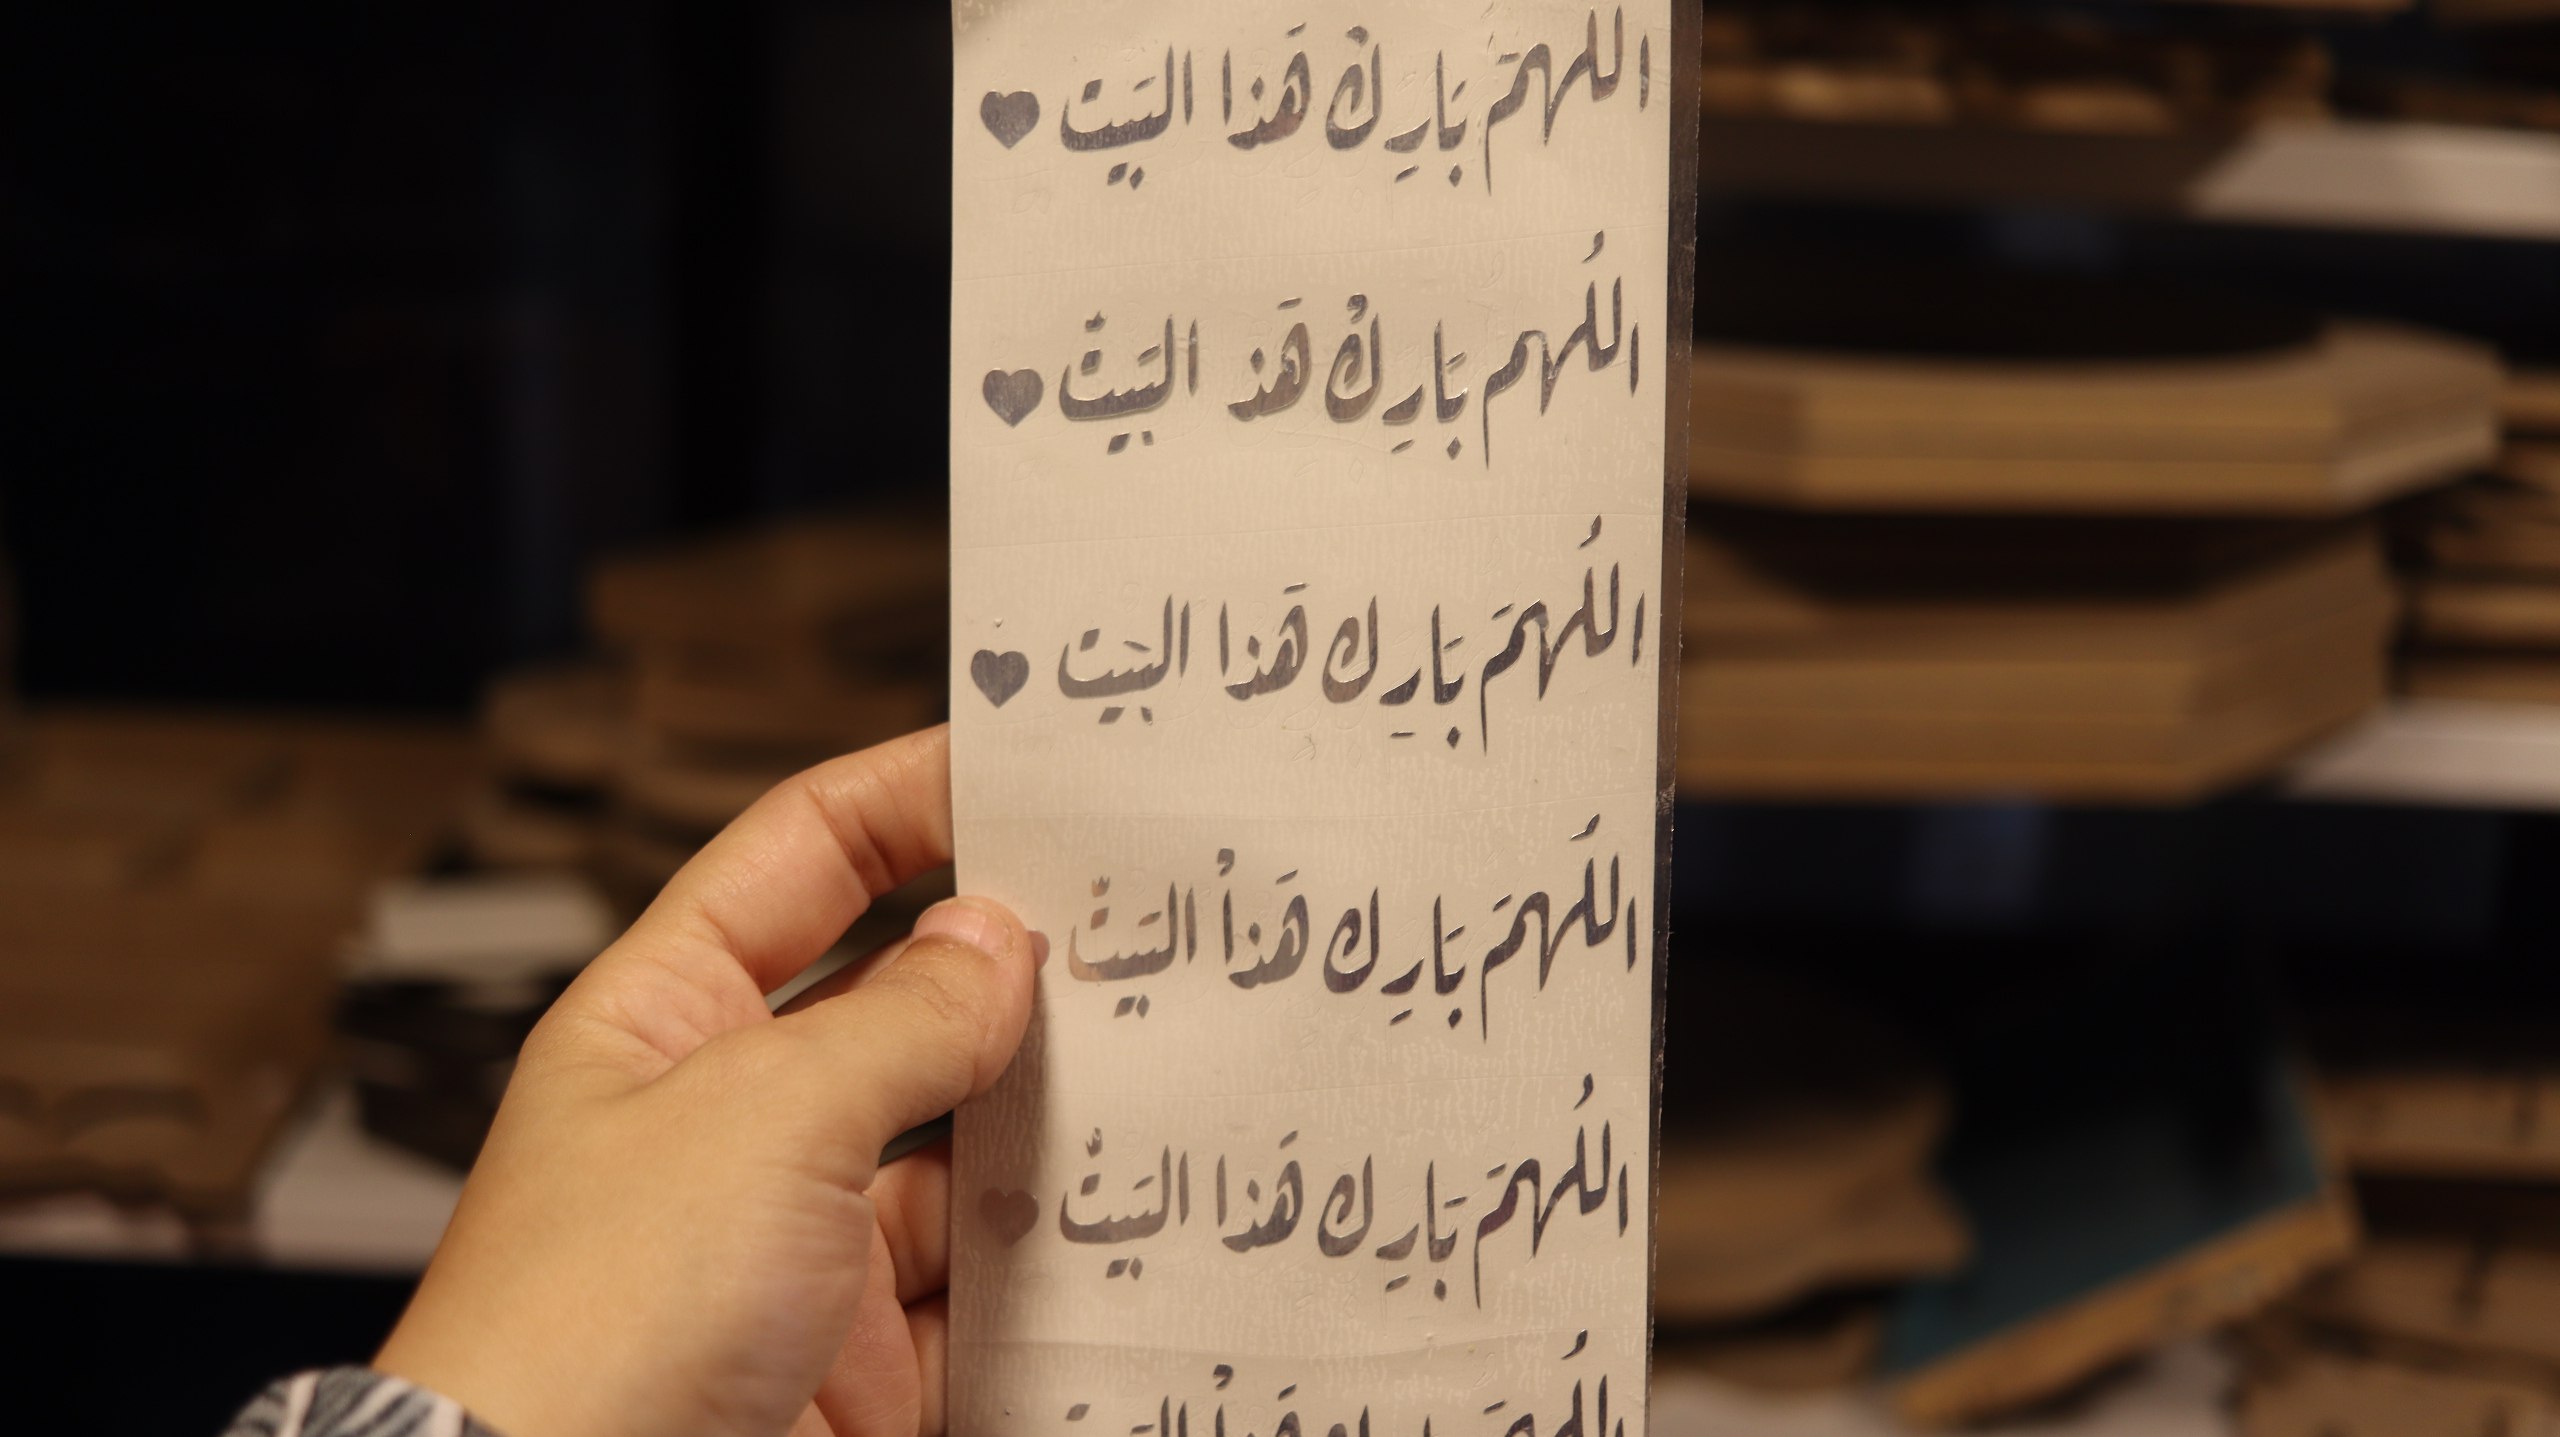 اللهمَ بَارِكْ هَذا البَيت ♥
اللُهم بَارِكْ هَذ البَيتْ ♥
اللُهمَ بَارِك هَذا البَيت ♥
اللُهمَ بَارِك هَذاْ البَيتْ
اللُهمَ بَارِك هَذا البَيتْ ♥
اللُهمَ بَارِك هَذاْ البَيت